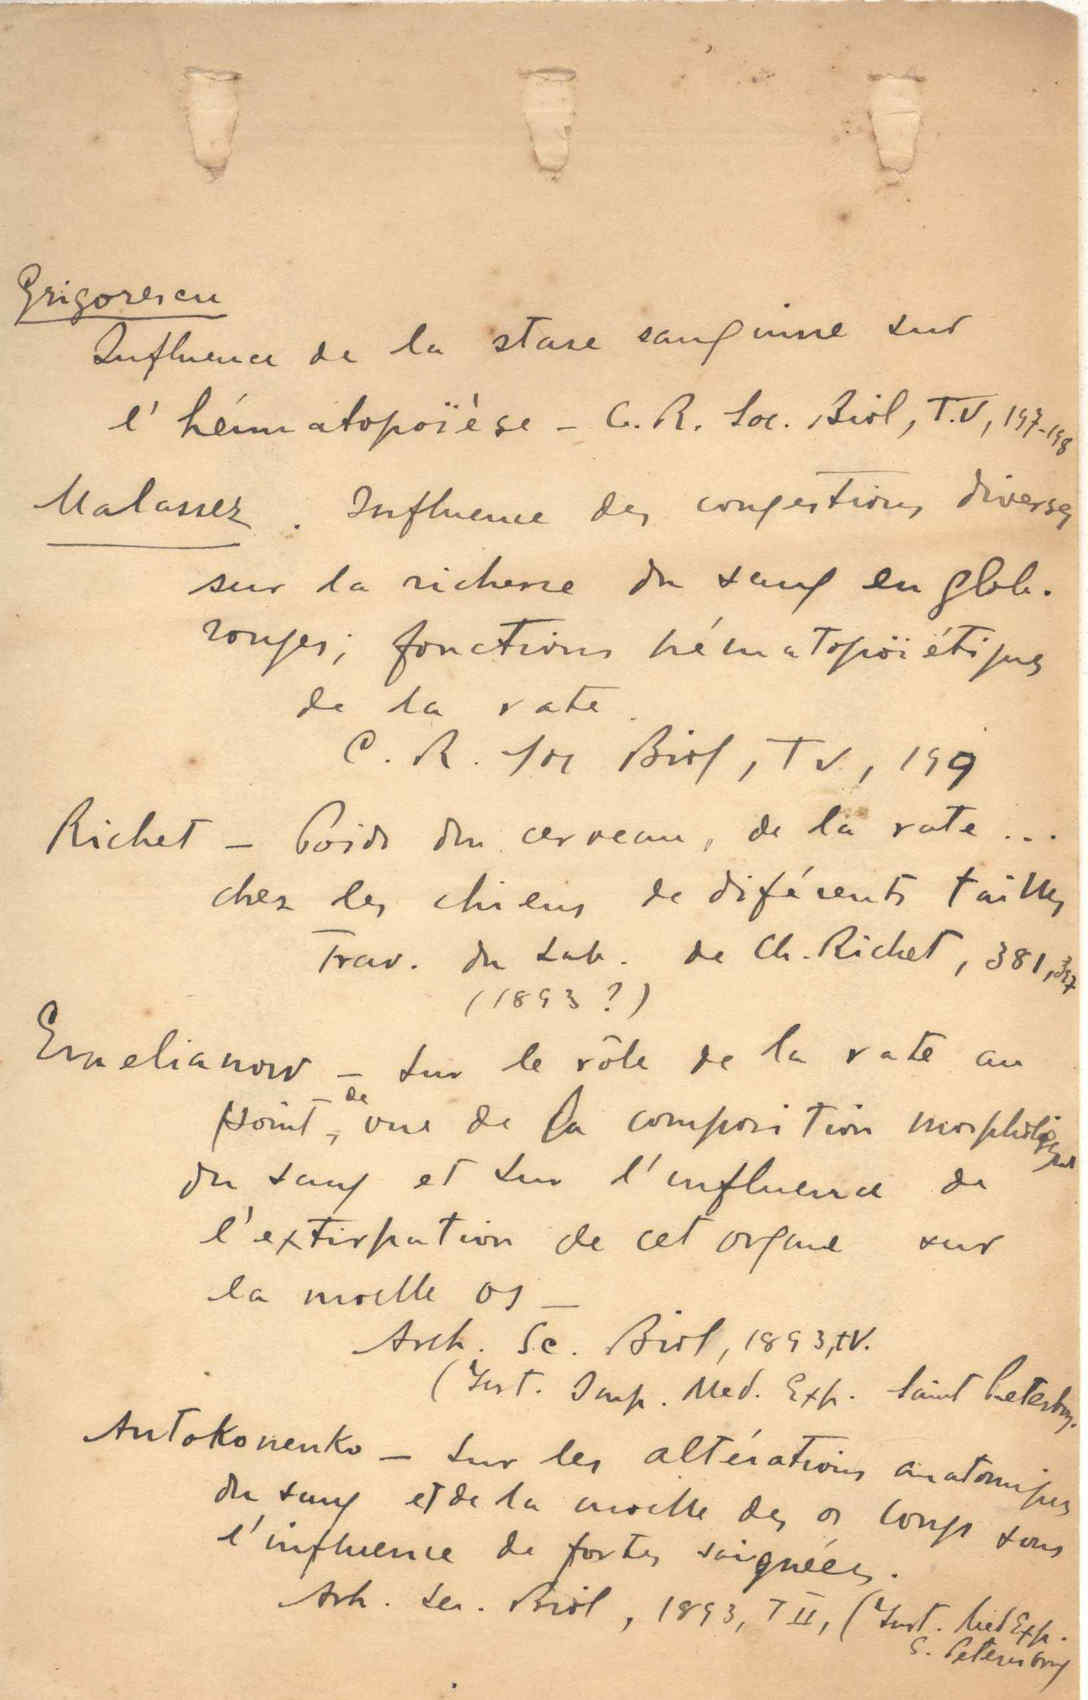 Grigorescu
Influence de la stase sanguine sur
l'hématopoïèse - C. R. Soc. Biol, T.V, 197-198
Malassez . Influence des congestions diverses
sur la richesse du sang en glob.
rouges; fonctions hématopoïétiques
de la rate.
C. R. Soc Biol, T V, 199
Richet - Poids du cerveau, de la rate ...
chez les chiens de diférents tailles
Trav. du Lab. de Ch. Richet, 381, 397
(1893 ?)
Emelianow - Sur le rôle de la rate au
point de vue de la composition morphologique
du sang et sur l'influence de
l'extirpation de cet organe sur
la moelle os -
Arch. Sc. Biol, 1893, tV.
(Inst. Imp. Med. Exp. Saint Petersbg.
Antokonenko - Sur les altérations anatomiques
du sang et de la moelle des os longs sous
l'influence de fortes saignées.
Arh. Sc. Biol, 1893, T II, (Inst. Med Exp.
S. Petersbourg